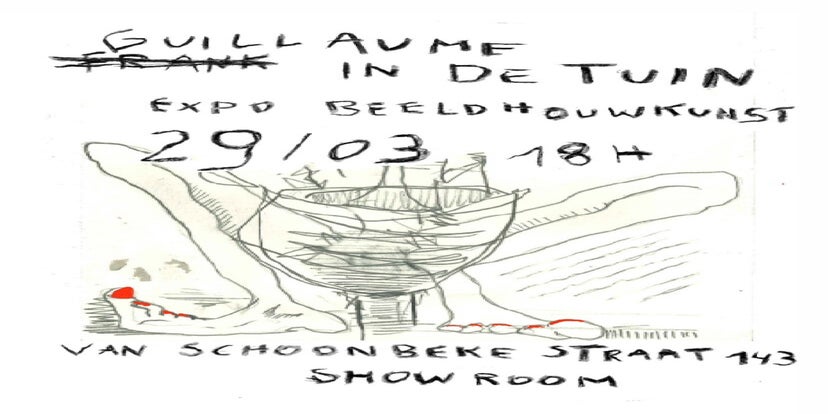 GUILLAUME
FRANK IN DE TUIN
EXPO BEELDHOUWKUNST
29/03 18H
VAN SCHOONBEKE STRAAT 143
SHOWROOM